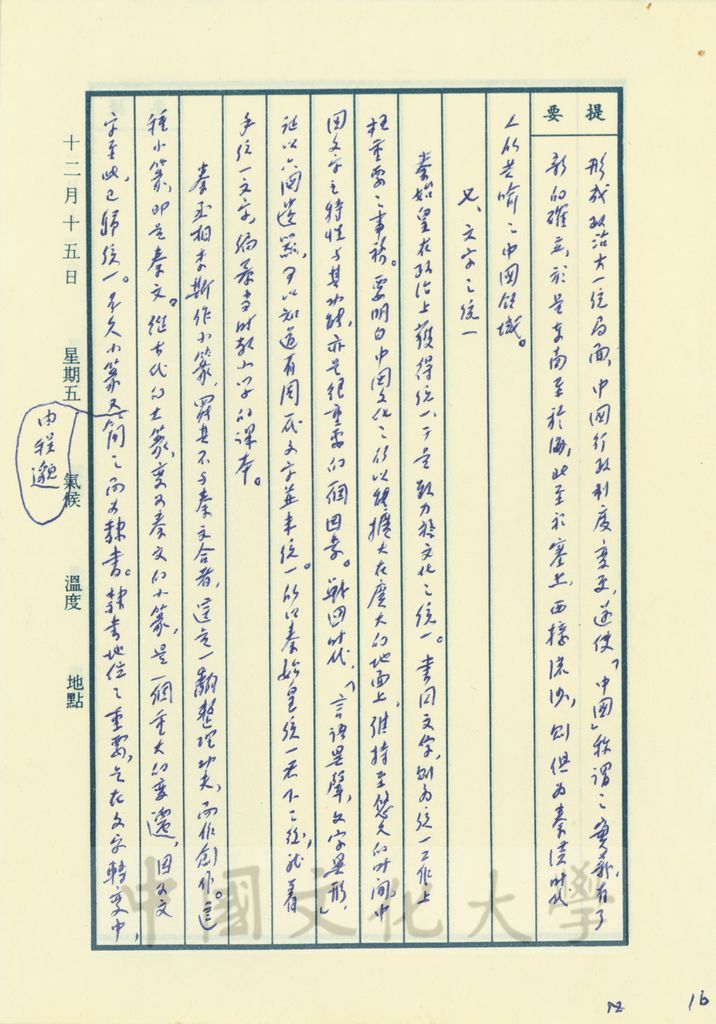 提要
形成政治大一統局面,中國行政制度變更,遂使「中國」稱謂之實義,有了
新的確立,於是東南至於海,北至於塞上,西接流沙,創但為秦漢時代
人所共喻之中國領域。
七、文字之統一
秦始皇在政治上獲得統一,于是致力於文化之統一。書同文字,則為統一工作上
極重要之事務。要明白中國文化之所以能擴大在廣大的地面上,維持至悠久的時間,中
國文字之特性與其功能,亦是很重要的一個因素。戰國時代,「言語異聲,文字異形」,
證以六國遺器,可以知道有周一代文字並未統一。所以秦始皇統一天下之後,就着
手統一文字,編纂當時教小學的課本。
秦丞相李斯作小篆,罷其不與秦文合者,這是一翻整理功夫,而作創作。這
種小篆,即是秦文。從古代的大篆,變為秦文的小篆,是一個重大的變遷,因為文
字至此,已歸統一。不久小篆又簡之而為隸書。隸書地位之重要,是在文字轉變中,
由程邈
十二月十五日 星期五 氣候 溫度 地點
中國文化大學
16